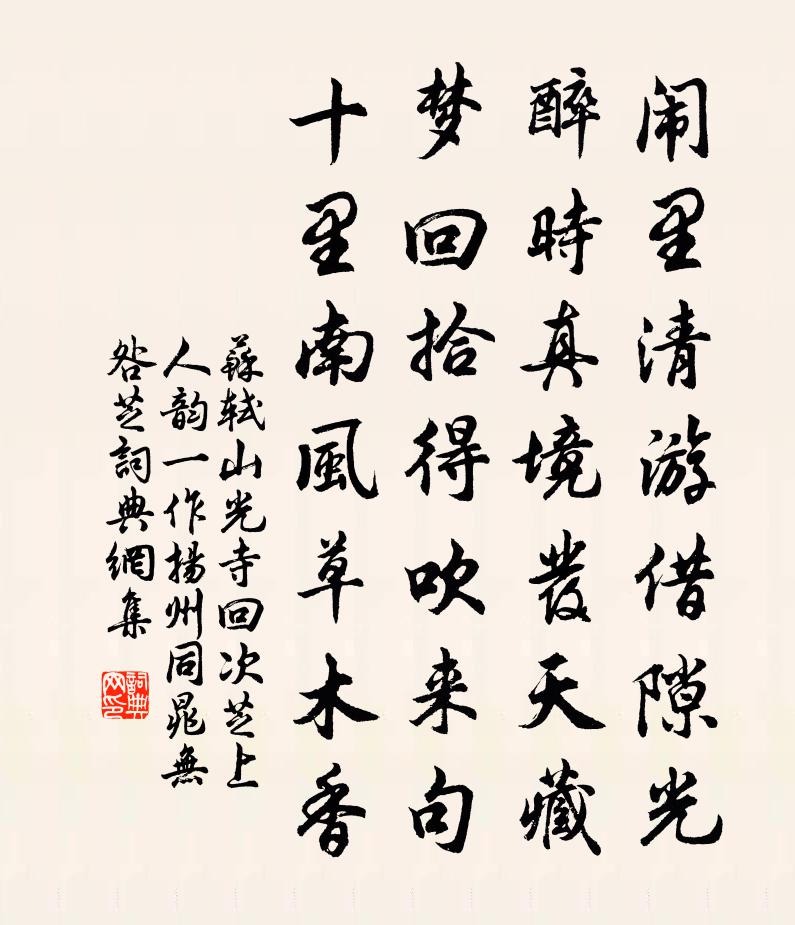 闹里清游借隙光
醉時真境發天藏
梦回拾得吹来句
十里南風草木香
蘇軾山光寺回次芝上
人韵一作揚州同晁無
咎芝詞典網集
詞典网印